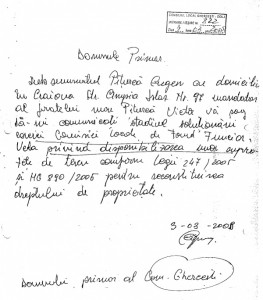 CONSILIUL LOCAL GHERCEȘTI - DOLJ
822
Domnule Primar.
Subsemnatul Piturcă Eugen cu domiciliul
în Craiova Nr. 98 mandatar
al fratelui meu Piturcă Victor vă rog
să-mi comunicați stadiul soluționării
cererii Comisiei Locale de Fond Funciar
privind disponibilizarea unei supra-
fețe de teren conform Legii 247/2005
și HG 890/2005 pentru reconstituirea
dreptului de proprietate.
3-03-2008
Domnului primar al Com. Ghercești